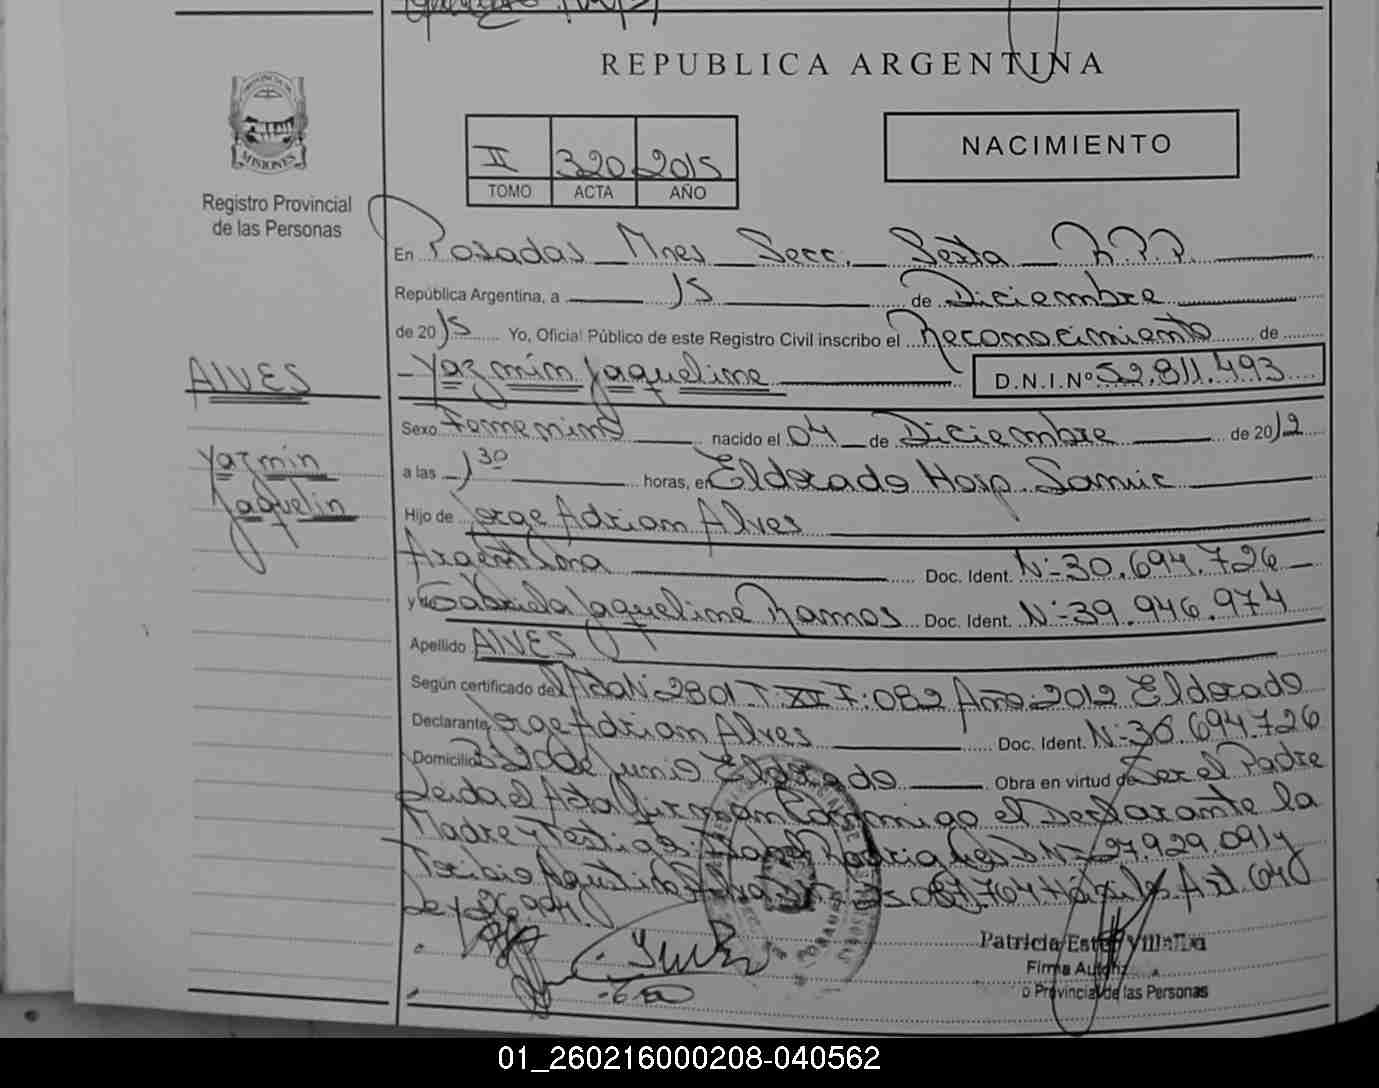 REPUBLICA ARGENTINA
PROVINCIA DE
MISIONES
Registro Provincial
de las Personas
II 320 2015
TOMO ACTA AÑO
NACIMIENTO
En Posadas Mnes Secc. Sexta R.P.P.
República Argentina, a 15 de Diciembre
de 2015 Yo, Oficial Público de este Registro Civil inscribo el Reconocimiento de
Yazmin Jaqueline D.N.I.Nº 52.811.493
ALVES
Yazmin
Jaquelin
Sexo Femenino nacido el 04 de Diciembre de 2012
a las 1 30 horas, en Eldorado Hosp. Samic
Hijo de Jorge Adrian Alves
Argentina Doc. Ident. Nº 30.694.726
y de Gabriela Jaqueline Ramos Doc. Ident. Nº 39.946.974
Apellido ALVES
Según certificado de Acta Nº 2801 T: XII F: 082 Año: 2012 Eldorado
Declarante Jorge Adrian Alves Doc. Ident. Nº 30.694.726
Domicilio 20 de Junio Eldorado Obra en virtud de Ser el Padre
Leida el Acta firman conmigo el Declarante la
Madre y Testigos: Rodriguez D.Nº 27.929.091 y
Toribio Agustin Art. 040
Ley 26.994
Patricia Ester Villalba
Firma Autoriz
o Provincial de las Personas
01_260216000208-040562